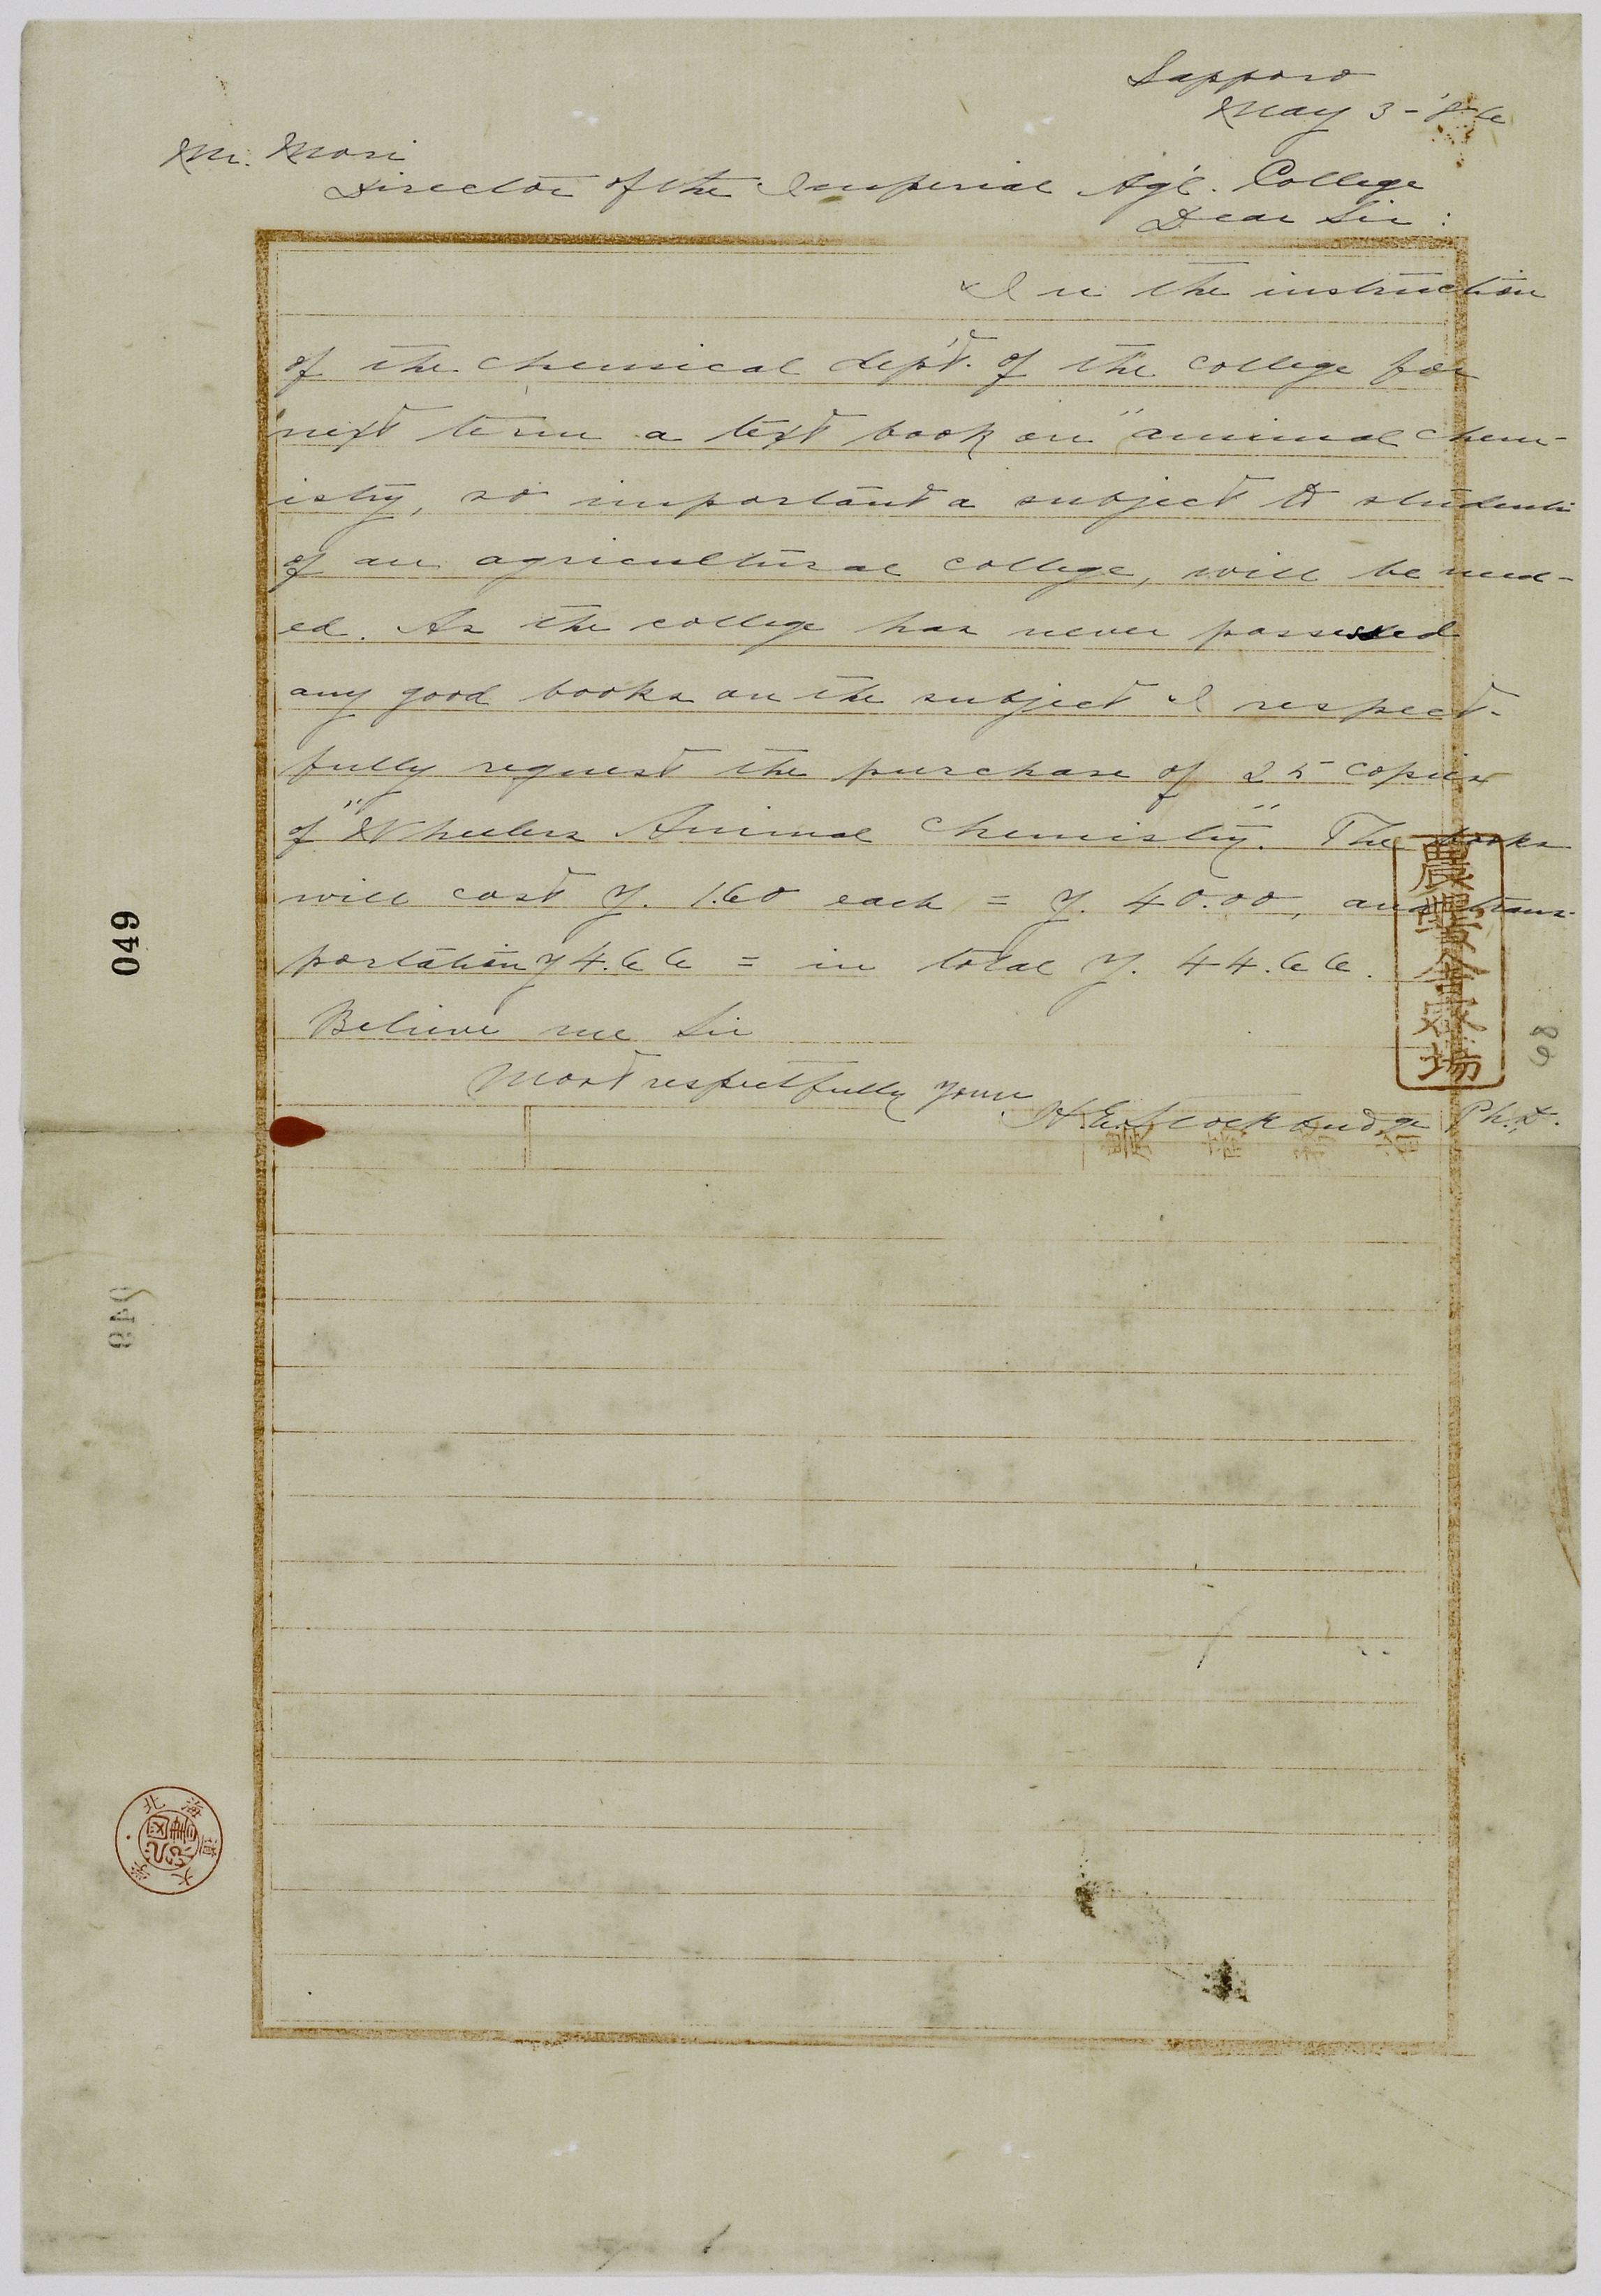 Sapporo
May 3-'86
Mr. Mori
Director of the Imperial Ag'l. College
Dear Sir:
In the instruction
of the chemical dep't. of the college for
next term a text book on "animal chem-
istry, so important a subject to students
of an agricultural college, will be need-
ed. As the college has never possessed
any good books on the subject I respect-
fully request the purchase of 25 copies
of "Wheelers Animal Chemistry". The books
will cost y. 1.60 each = y. 40.00, and trans-
portation y 4.66 = in total y. 44.66.
Believe me Sir
Most respectfully yours
H.E. Stockbridge Ph.D.
農業事務所
049
049
68
北海道大学圖書